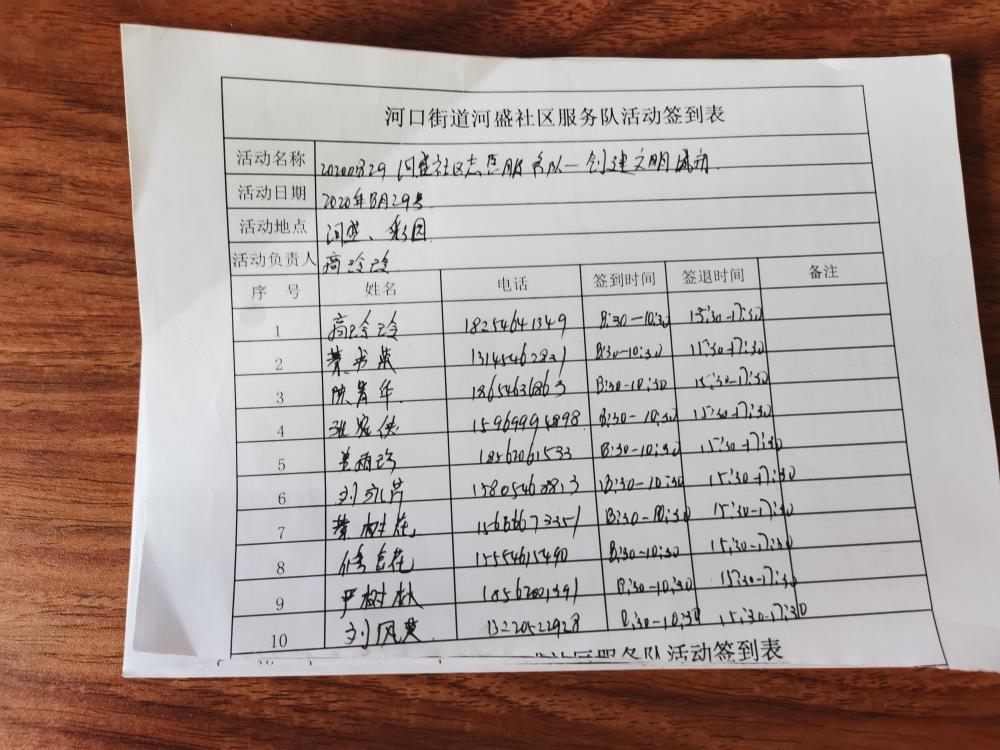 河口街道河盛社区服务队活动签到表
活动名称 20200829 河盛社区志愿服务队—创建文明城市
活动日期 2020年8月29号
活动地点 河盛、彩园
活动负责人 高玲玲
序 号 姓名 电话 签到时间 签退时间 备注
1 高玲玲 18254641349 8:30-10:30 15:30-17:30
2 13145462831 8:30-10:30 15:30-17:30
3 陈青华 18654636863 8:30-10:30 15:30-17:30
4 15969994898 8:30-10:30 15:30-17:30
5 姜丽珍 18562061533 8:30-10:30 15:30-17:30
6 刘永芹 15805462813 8:30-10:30 15:30-17:30
7 8:30-10:30 15:30-17:30
8 15554615490 8:30-10:30 15:30-17:30
9 严树林 18562001391 8:30-10:30 15:30-17:30
10 刘风英 13220522928 8:30-10:30 15:30-17:30
社区服务队活动签到表